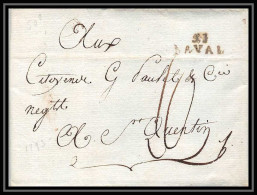 51
LAVAL
Aux
Citoyens G Paulet & Cie
negtt
A St Quentin